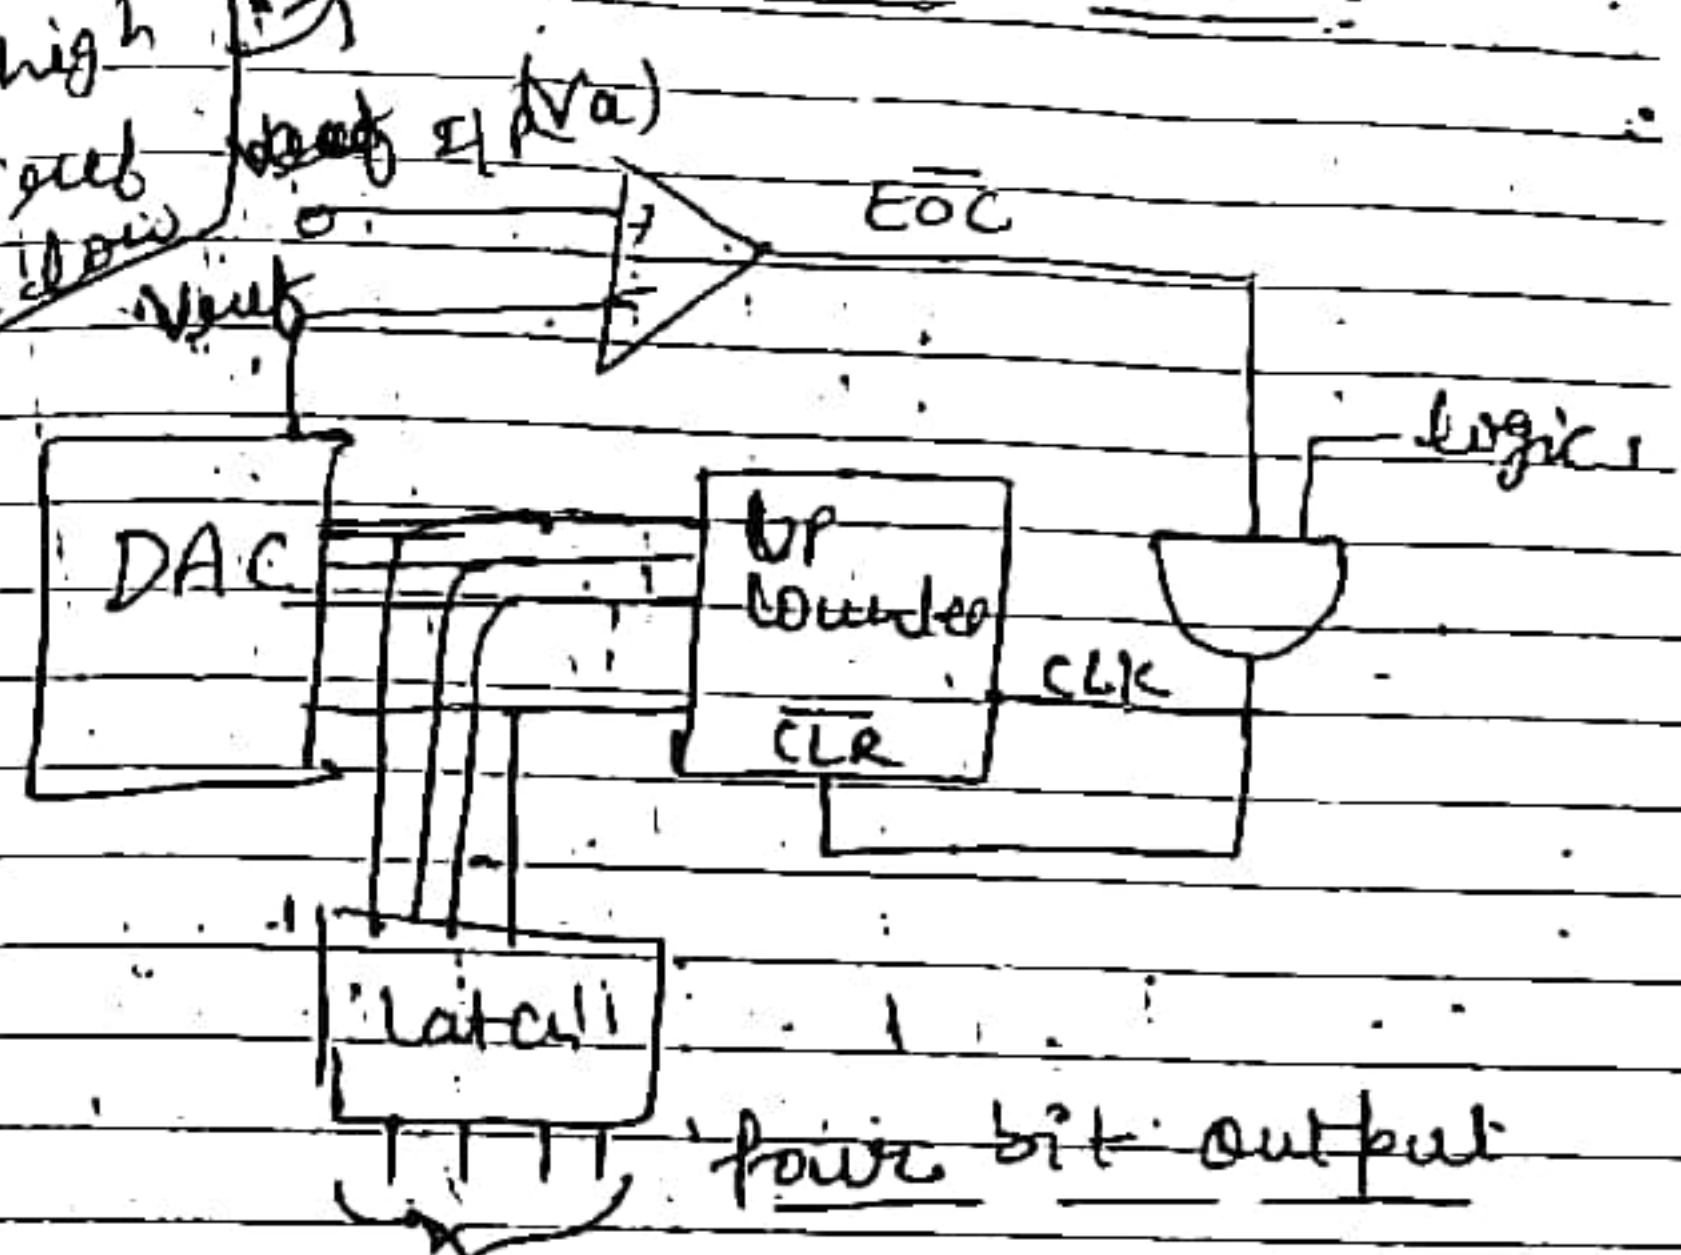 high
(Va)
EOC
low
Vout
Logic 1
DAC
UP
Counter
CLK
CLR
Latch
four bit output